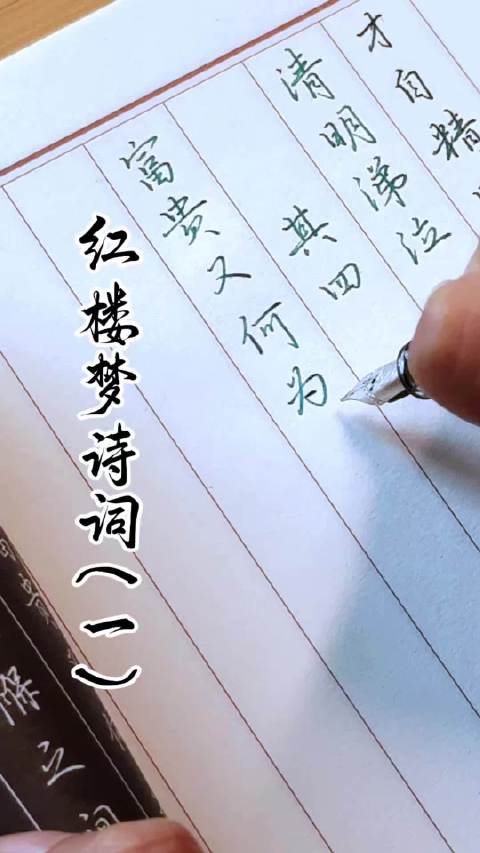 才自精
清明涕泣
其四
富贵又何为
红楼梦诗词(一)
保之